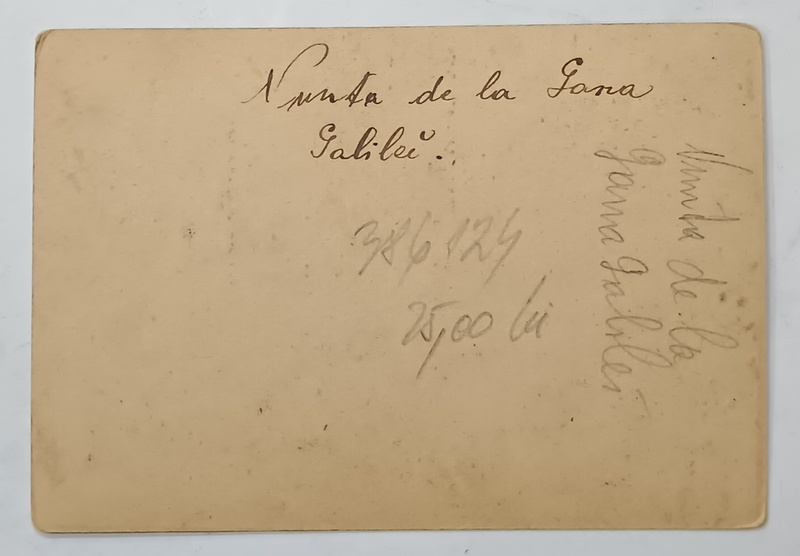 Nunta de la Gana
Galilei.
386124
25,00 lei
Nunta de la
Gana Galilei